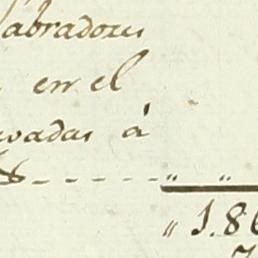 labradores
en el
vadas à
" "
" 1.86